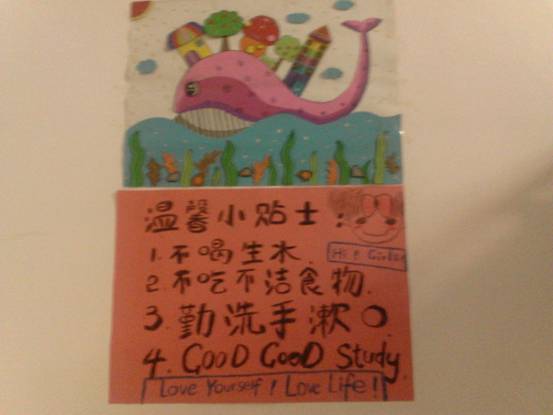 温馨小贴士:
Hi! Girls
1. 不喝生水.
2. 不吃不洁食物.
3. 勤洗手漱口
4. GooD GooD Study
Love Yourself! Love Life!